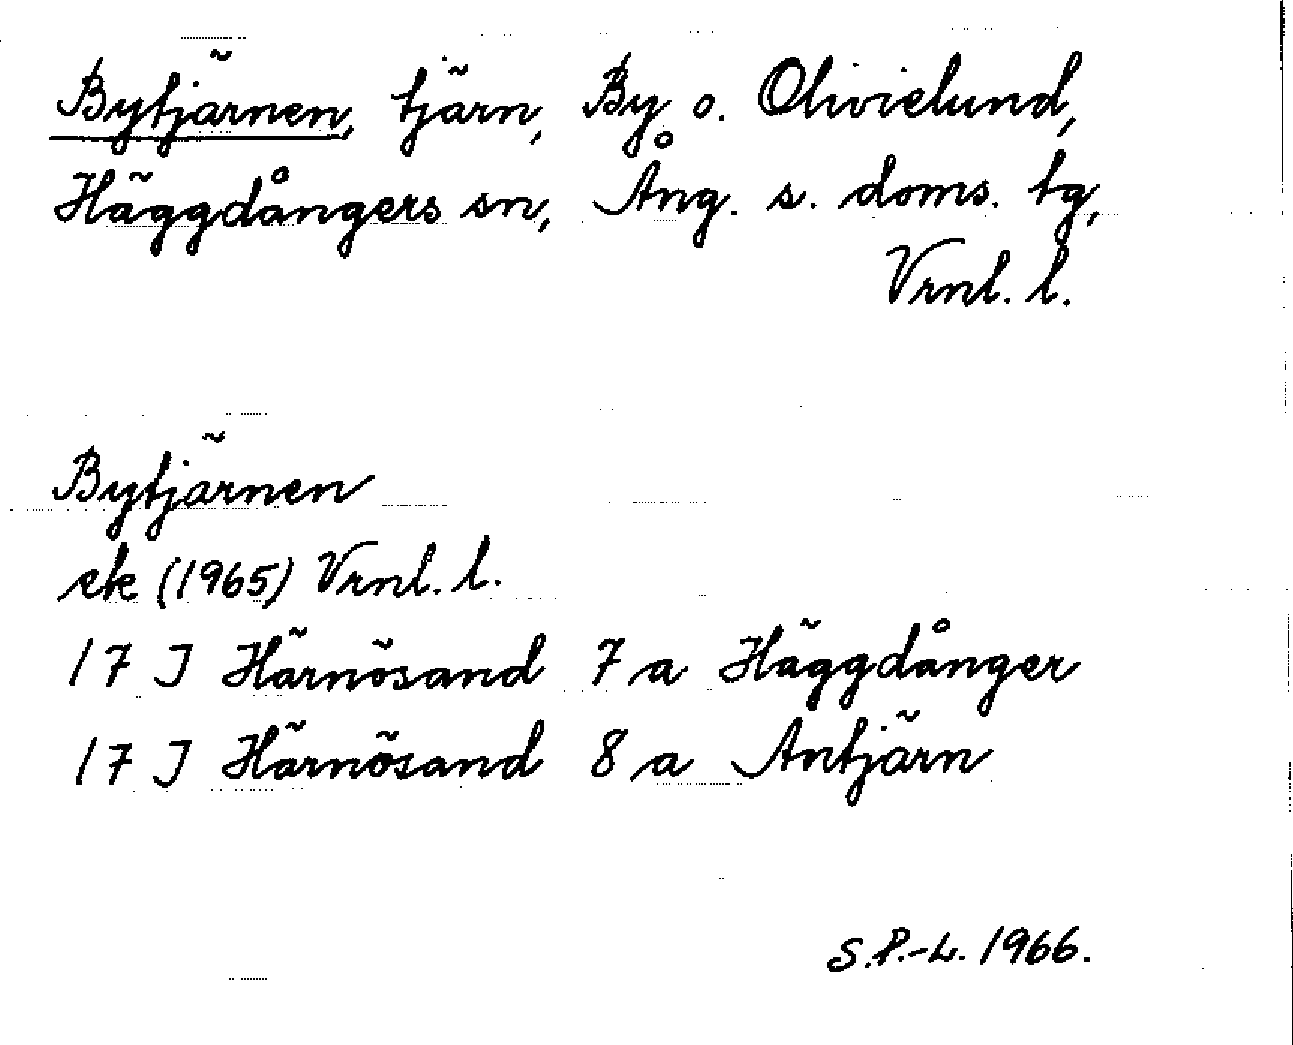 Bytjärnen, tjärn, By o. Olivielund,
Häggdångers sn, Ång. s. doms. tg,
Vrnl. l.
Bytjärnen
ek (1965) Vrnl. l.
17 J Härnösand 7 a Häggdånger
17 J Härnösand 8 a Antjärn
S.P.-L. 1966.